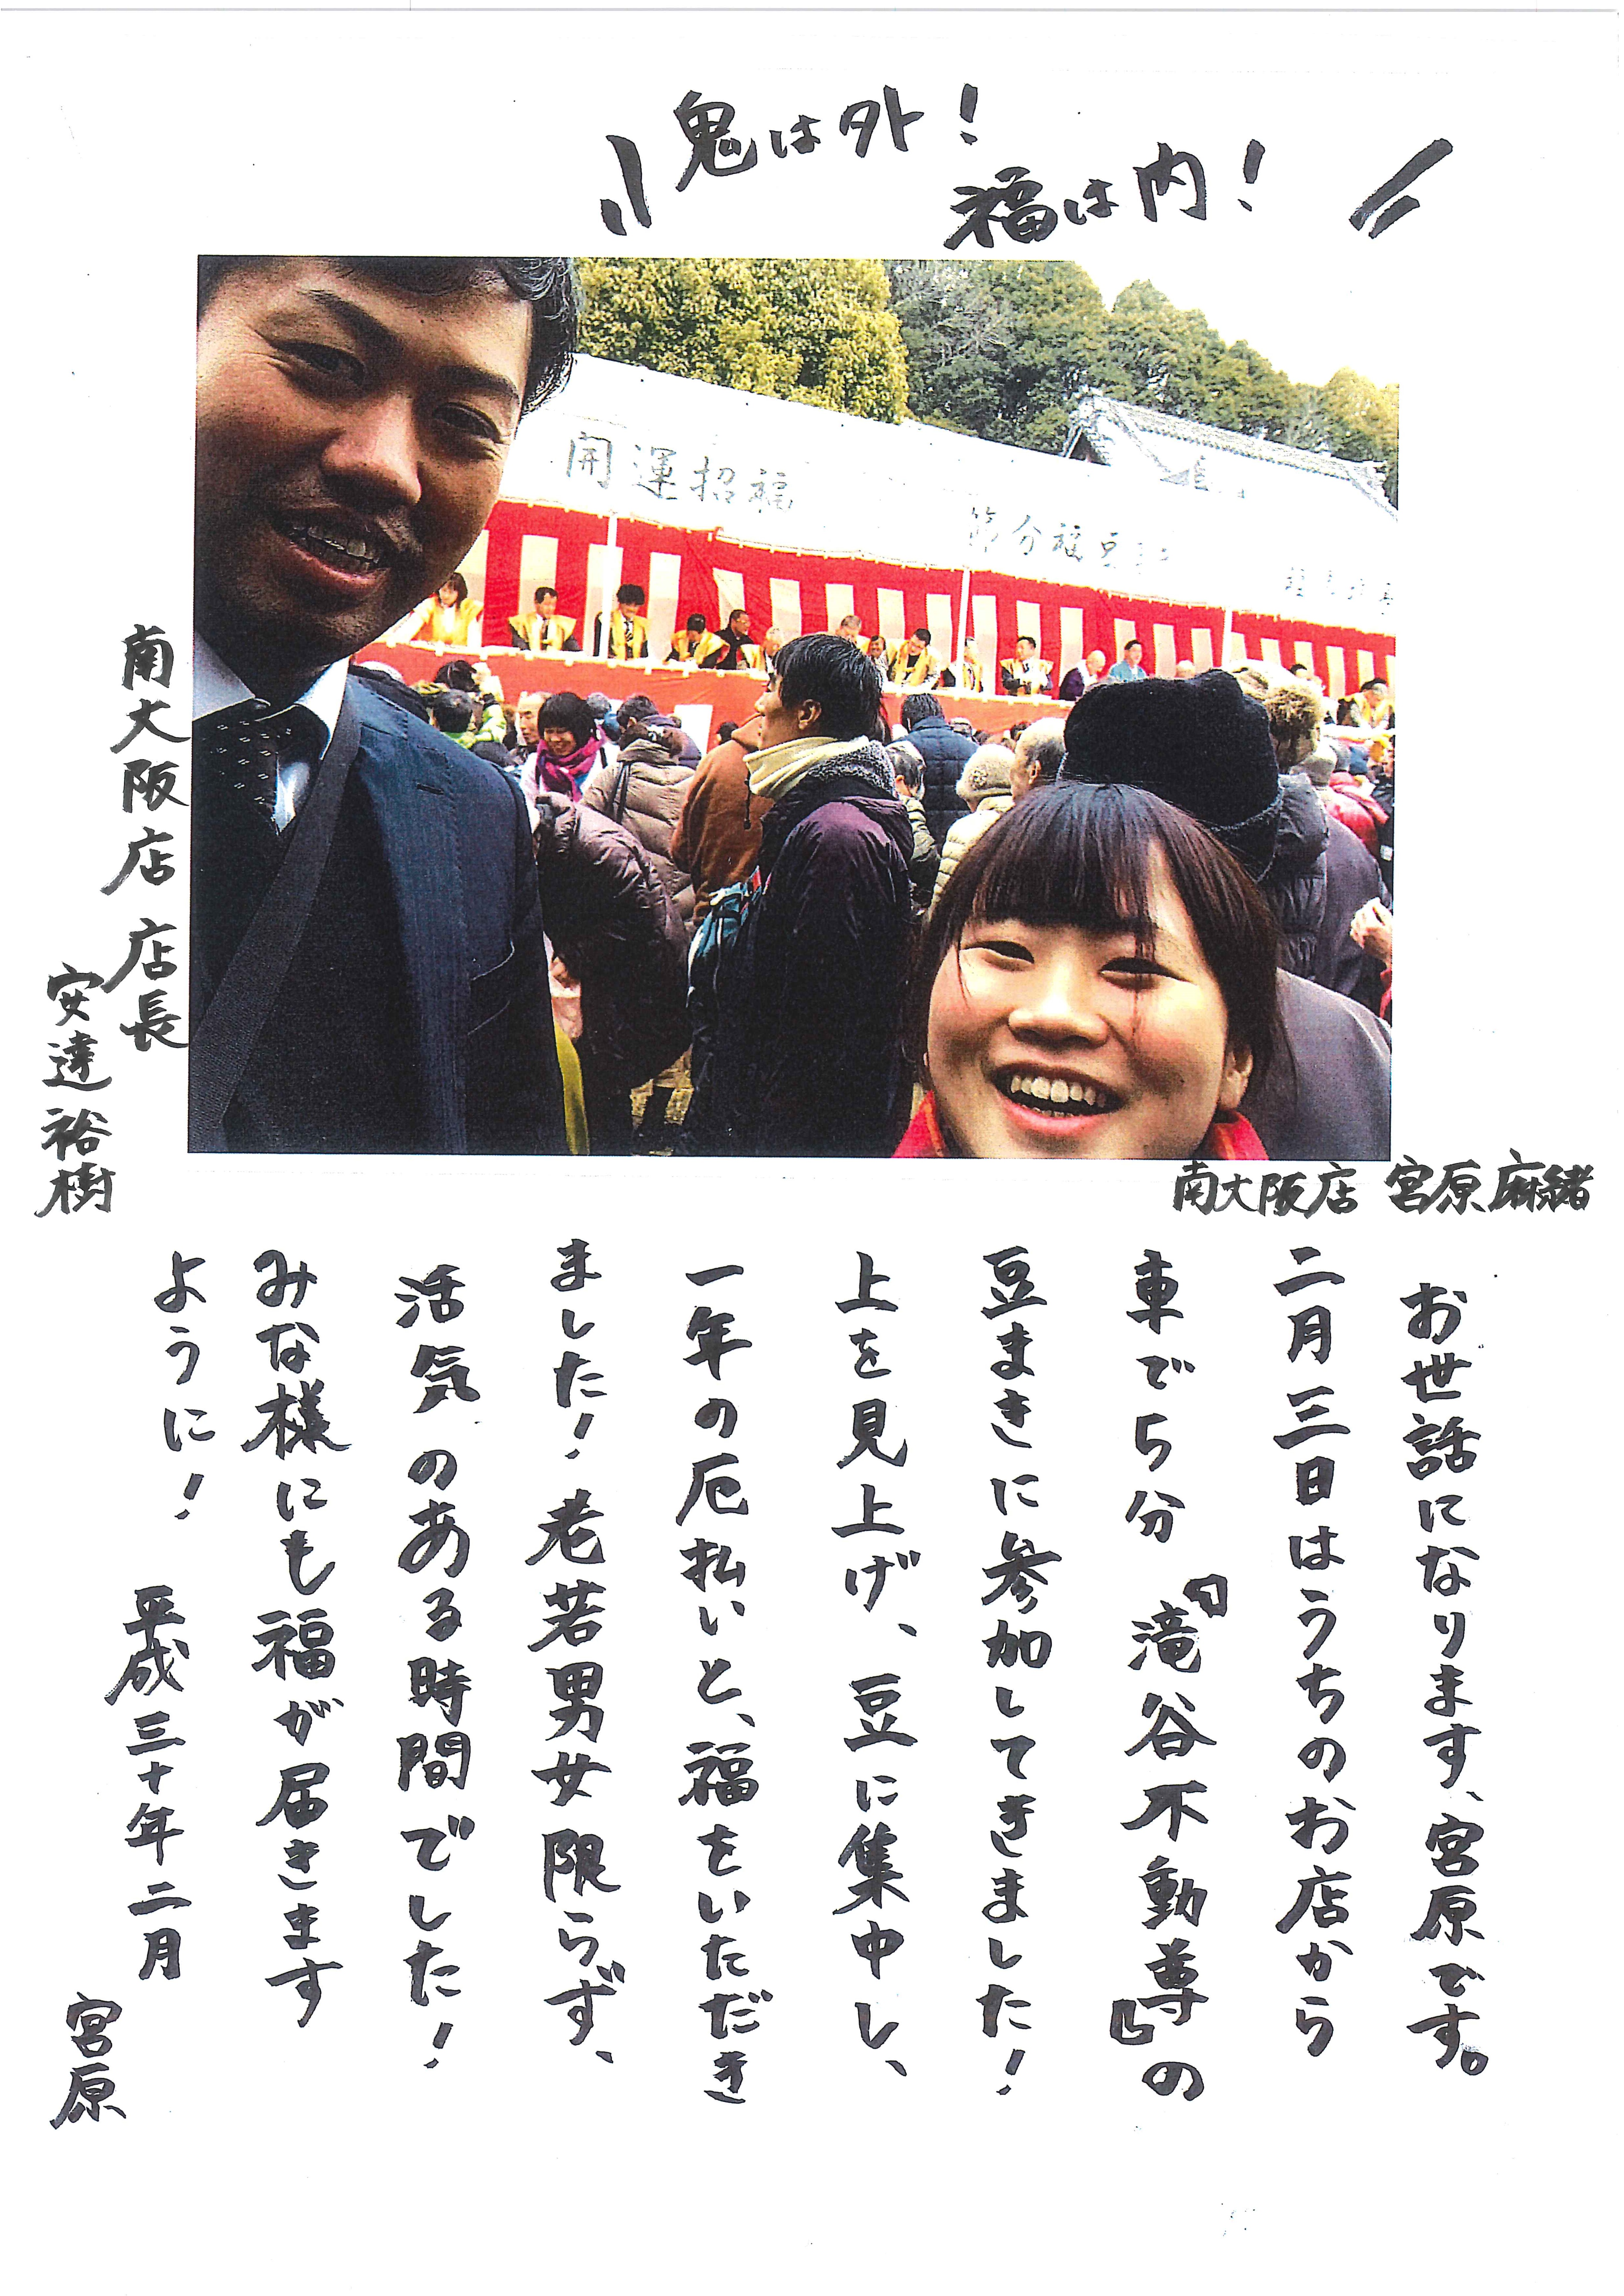 鬼は外!
福は内!
開運招福
節分福豆
南大阪店 店長
安達裕樹
南大阪店 宮原麻緒
お世話になります、宮原です。
二月三日はうちのお店から
車で5分『滝谷不動尊』の
豆まきに参加してきました!
上を見上げ、豆に集中し、
一年の厄払いと、福をいただき
ました!老若男女限らず、
活気のある時間でした!
みな様にも福が届きます
ように!
平成三十年二月
宮原